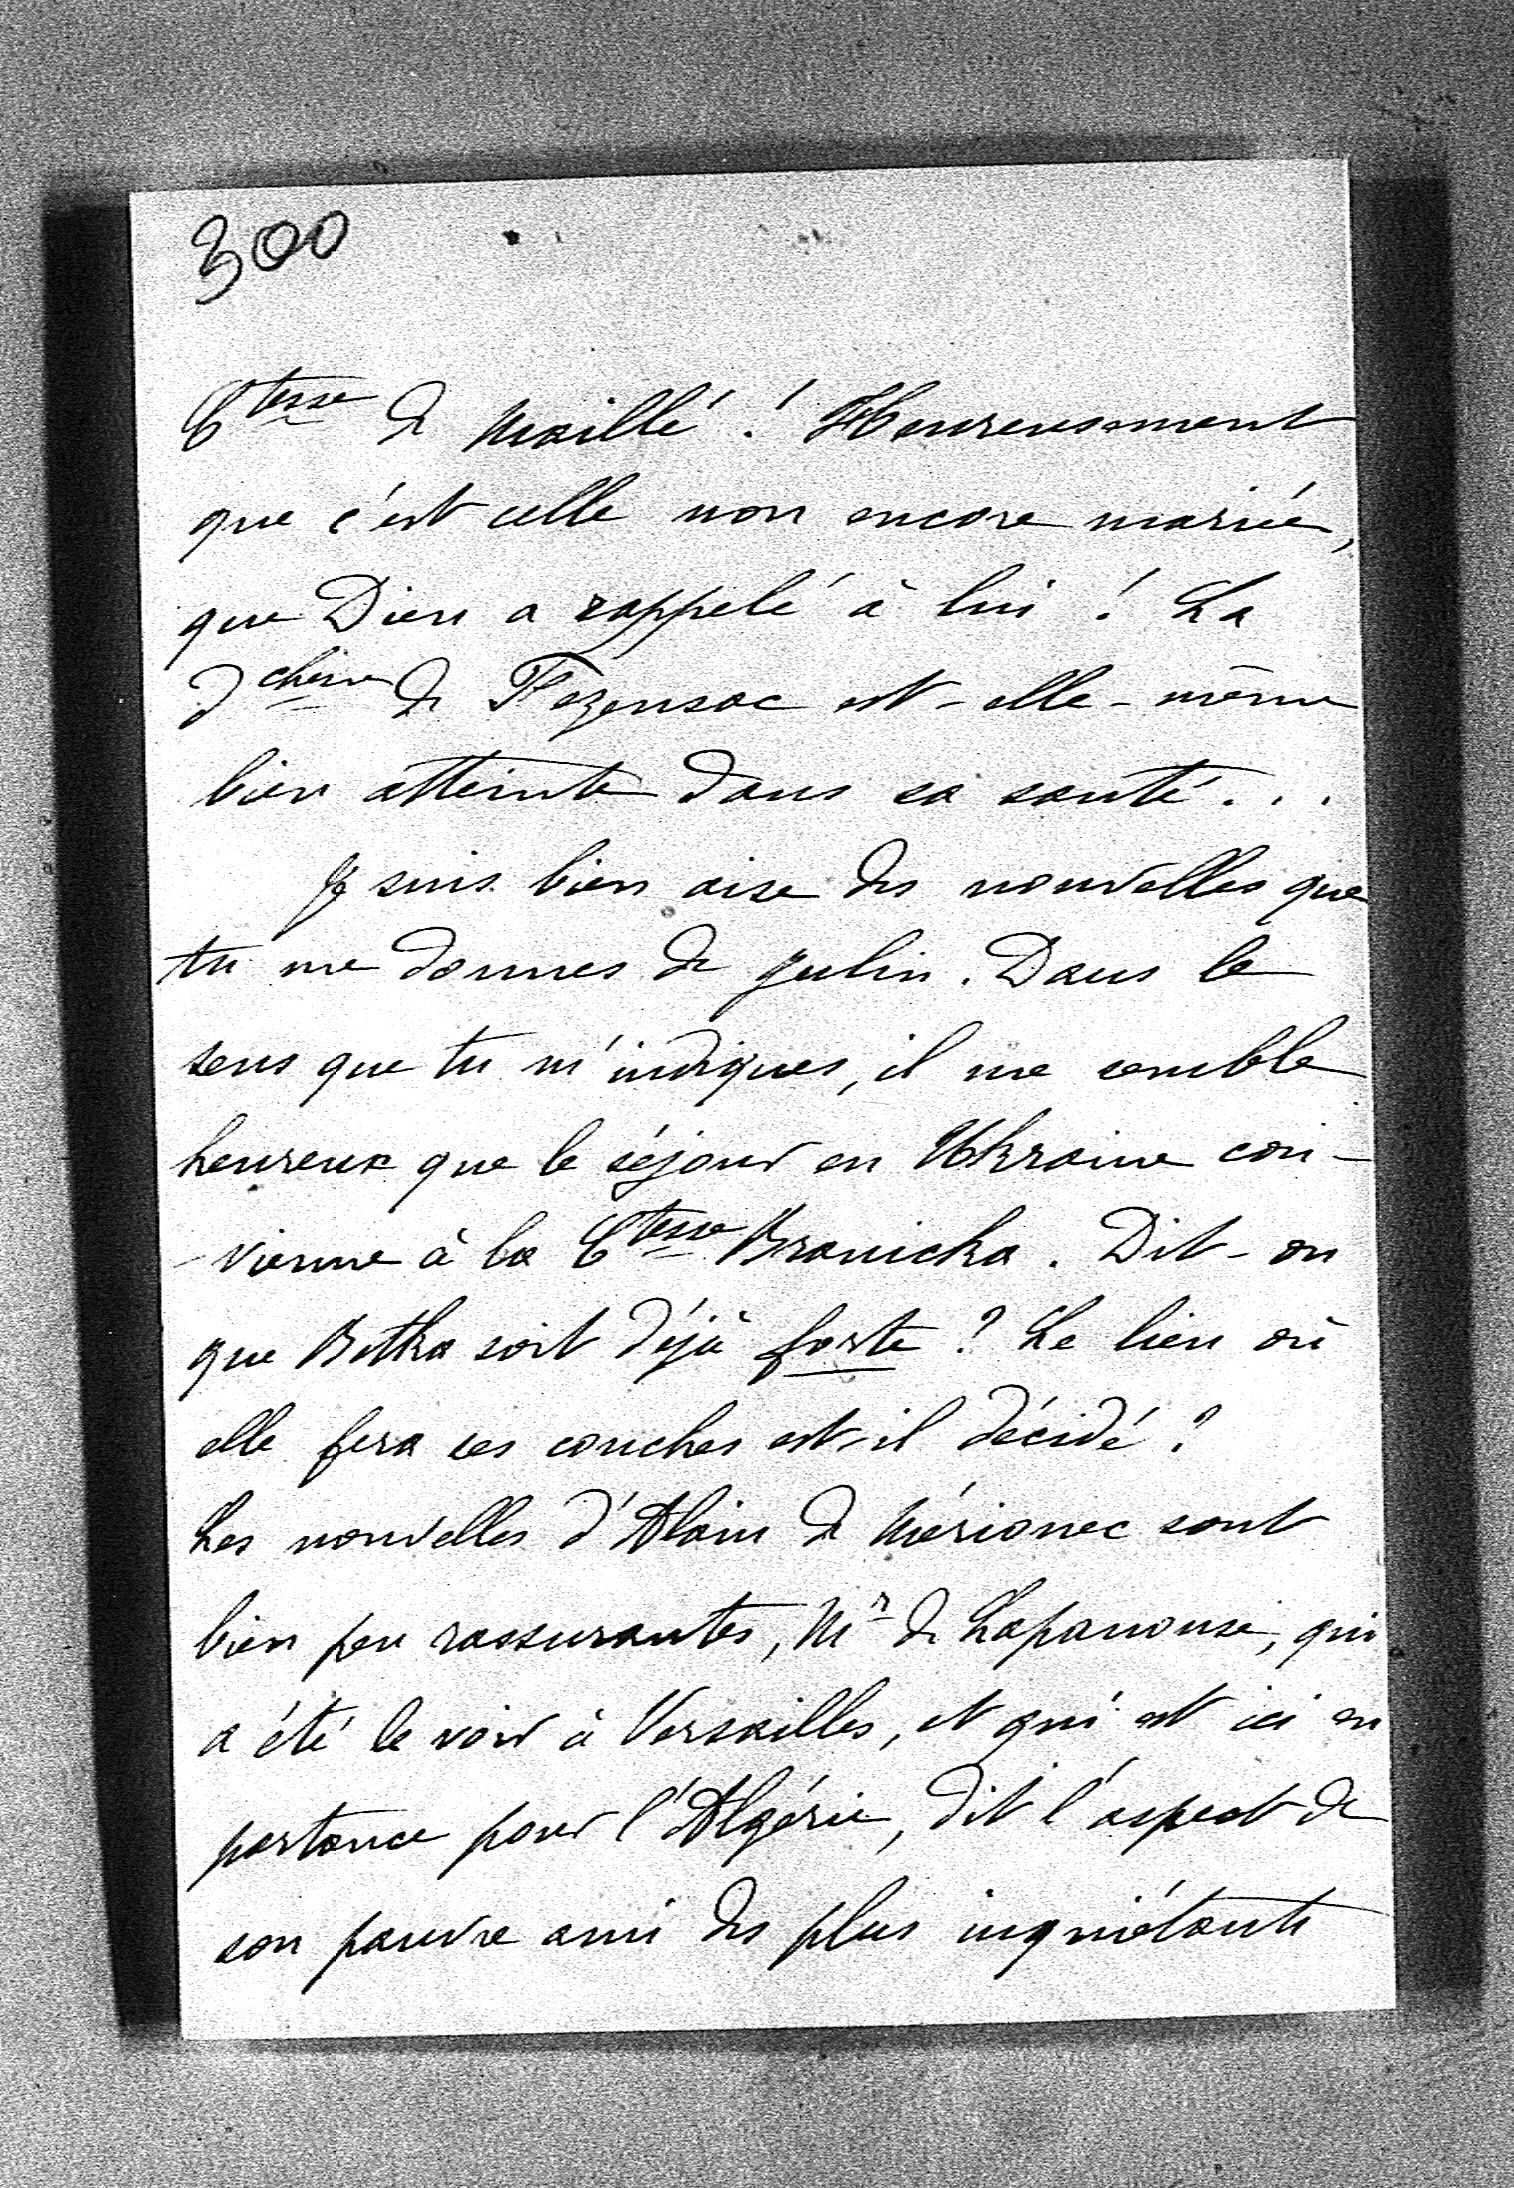 300
Ctesse de Maillé ! Heureusement
que c'est celle non encore mariée,
que Dieu a rappelé à lui ! La
Dchesse de Fezensac est-elle-même
bien atteinte dans sa santé...
Je suis bien aise des nouvelles que
tu me donnes de Julin. Dans le
sens que tu m'indiques, il me semble
heureux que le séjour en Ukraine con-
-vienne à la Ctesse Branicka. Dit-on
que Betka soit déjà forte ? Le lieu où
elle fera ses couches est-il décidé ?
Les nouvelles d'Alain de Mérionec sont
bien peu rassurantes, Mr de Lapanouse, qui
a été le voir à Versailles, et qui est ici en
partance pour l'Algérie, dit l'aspect de
son pauvre ami des plus inquiétants